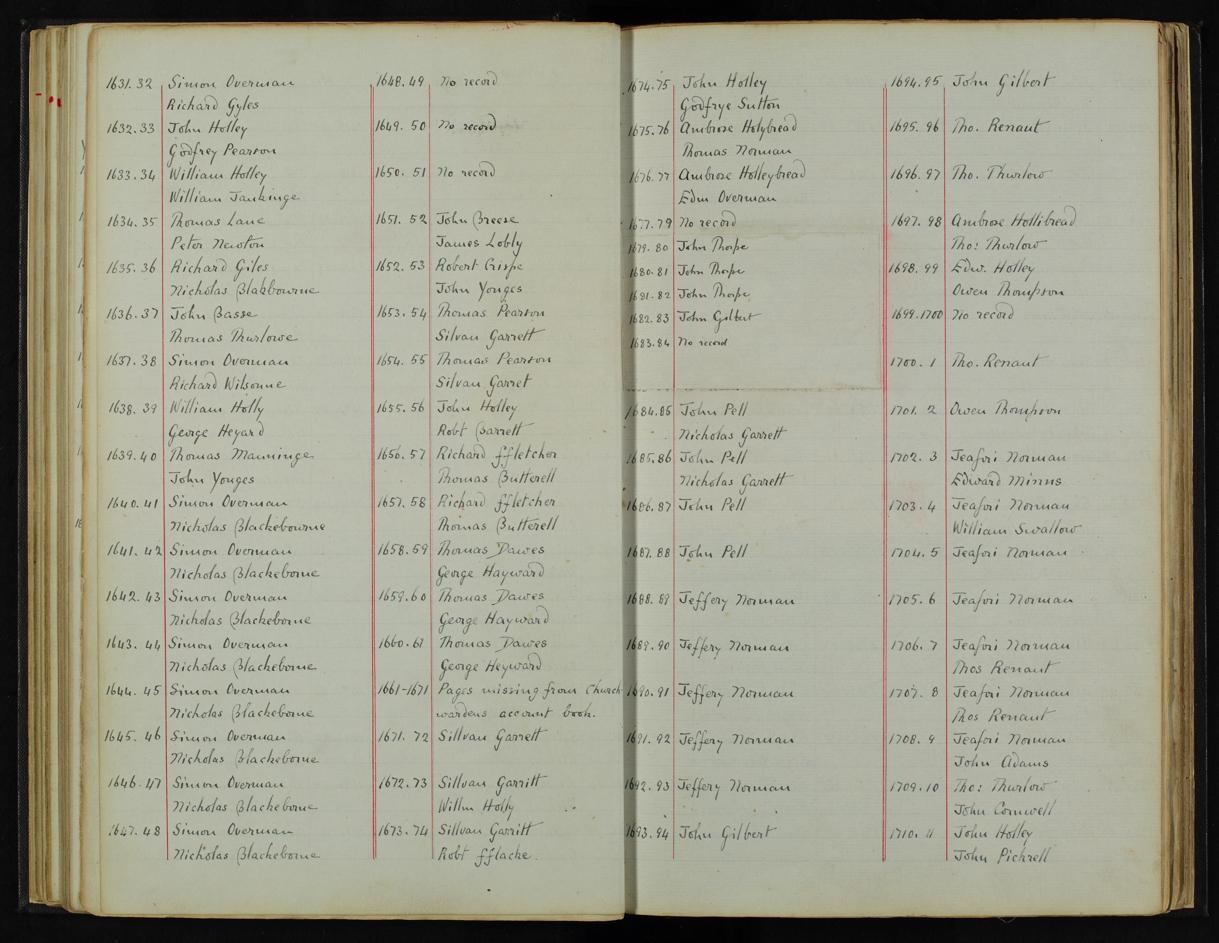 1631.32 Simon Overman
Richard Gyles
1632.33 John Holley
Godfrey Pearson
1633.34 William Holley
William Jankinge
1634.35 Thomas Lane
Peter Newton
1635.36 Richard Giles
Nicholas Blakbourne
1636.37 John Basse
Thomas Thurlowe
1637.38 Simon Overman
Richard Wilsonne
1638.39 William Holly
George Heyard
1639.40 Thomas Manninge
John Yonges
1640.41 Simon Overman
Nicholas Blackebourne
1641.42 Simon Overman
Nicholas Blackeborne
1642.43 Simon Overman
Nicholas Blackeborne
1643.44 Simon Overman
Nicholas Blackeborne
1644.45 Simon Overman
Nicholas Blackeborne
1645.46 Simon Overman
Nicholas Blackeborne
1646.47 Simon Overman
Nicholas Blackeborne
1647.48 Simon Overman
Nicholas Blackeborne
1648.49 No record
1649.50 No record
1650.51 No record
1651.52 John Breese
James Lobly
1652.53 Robert Crispe
John Yonges
1653.54 Thomas Pearson
Silvan Garrett
1654.55 Thomas Pearson
Silvan Garret
1655.56 John Holley
Robt Barrett
1656.57 Richard ffletcher
Thomas Butterell
1657.58 Richard ffletcher
Thomas Butterell
1658.59 Thomas Dawes
George Hayward
1659.60 Thomas Dawes
George Hayward
1660.61 Thomas Dawes
George Heyward
1661-1671 Pages missing from Church
wardens account book.
1671.72 Sillvan Garrett
1672.73 Sillvan Garritt
Willm Holly
1673.74 Sillvan Garritt
Robt fflacke.
1674.75 John Holley
Godfrye Sutton
1675.76 Ambrose Holybread
Thomas Norman
1676.77 Ambrose Holleybread
Edm Overman
1677.79 No record
1679.80 John Thorpe
1680.81 John Thorpe
1681.82 John Thorpe
1682.83 John Gilbert
1683.84 No record
1684.85 John Pell
Nicholas Garrett
1685.86 John Pell
Nicholas Garrett
1686.87 John Pell
1687.88 John Pell
1688.89 Jeffery Norman
1689.90 Jeffery Norman
1690.91 Jeffery Norman
1691.92 Jeffery Norman
1692.93 Jeffery Norman
1693.94 John Gilbert
1694.95 John Gilbert
1695.96 Tho. Renaut
1696.97 Tho. Thurlow
1697.98 Ambrose Hollibread
Tho: Thurlow
1698.99 Edw. Holley
Owen Thompson
1699.1700 No record
1700.1 Tho. Renaut
1701.2 Owen Thompson
1702.3 Jeafori Norman
Edward Minns
1703.4 Jeafori Norman
William Swallow
1704.5 Jeafori Norman
1705.6 Jeafori Norman
1706.7 Jeafori Norman
Thos Renaut
1707.8 Jeafori Norman
Thos Renaut
1708.9 Jeafori Norman
John Adams
1709.10 Tho: Thurlow
John Cornwell
1710.11 John Holley
John Pickrell